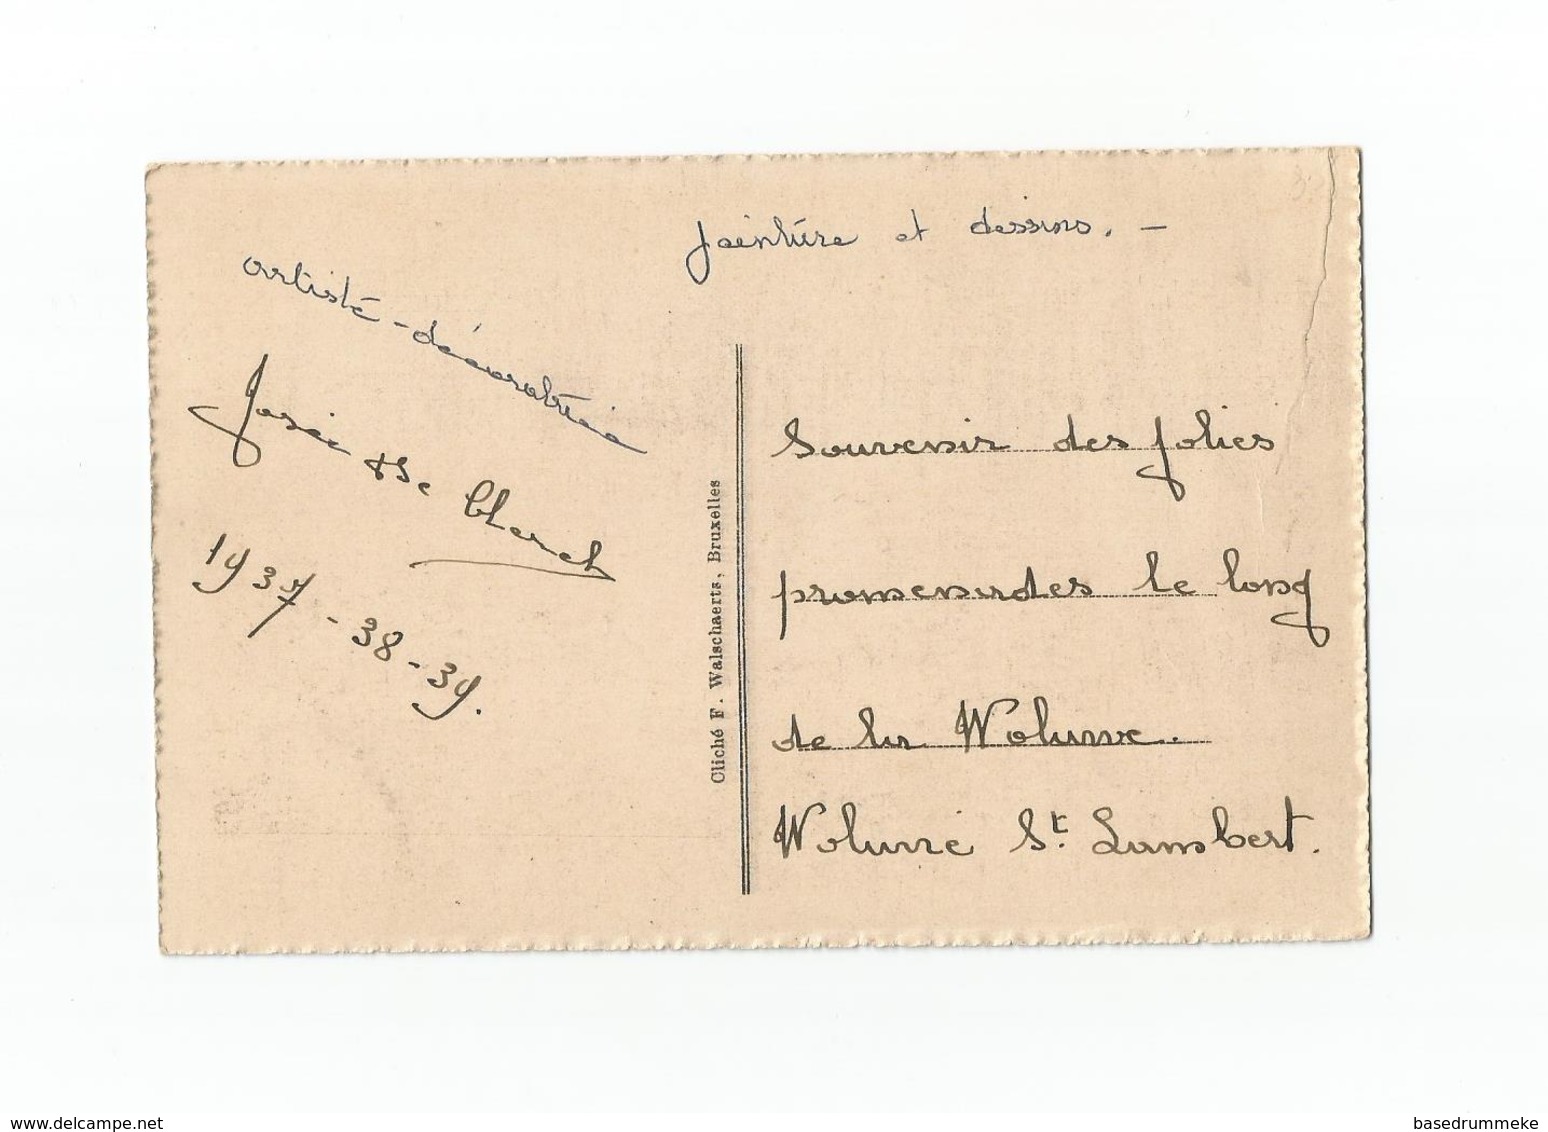 peinture et dessins. –
artiste-décoratrice
1937-38-39.
Cliché F. Walschaerts, Bruxelles
Souvenir des jolies
promenades le long
de la Woluwe.
Woluwe St. Lambert.
www.delcampe.net
basedrummeke